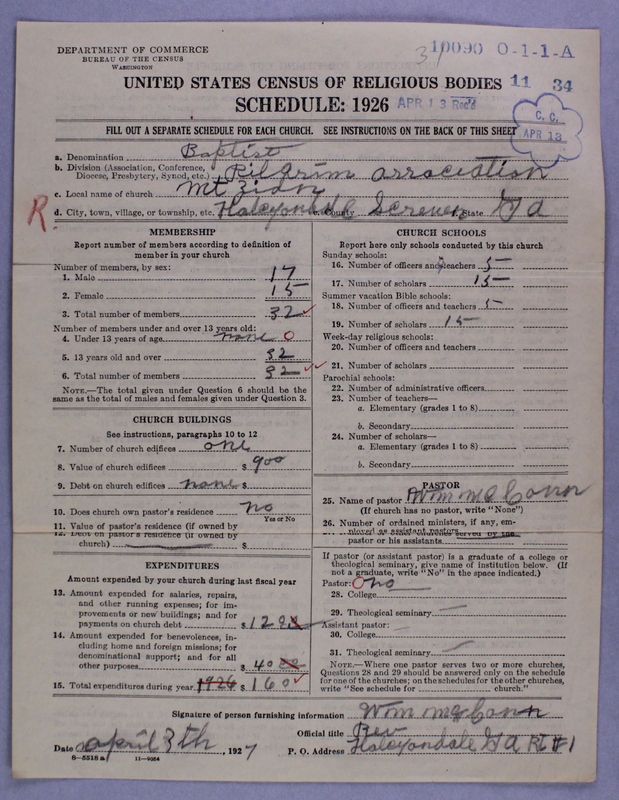 DEPARTMENT OF COMMERCE
BUREAU OF THE CENSUS
WASHINGTON
10090 0-1-1-A
UNITED STATES CENSUS OF RELIGIOUS BODIES 11 34
SCHEDULE: 1926 APR 13 Rec'd
C. C.
APR 13
FILL OUT A SEPARATE SCHEDULE FOR EACH CHURCH. SEE INSTRUCTIONS ON THE BACK OF THIS SHEET
a. Denomination Baptist
b. Division (Association, Conference, Diocese, Presbytery, Synod, etc.) Pilgrim association
c. Local name of church Mt Zion
R. d. City, town, village, or township, etc. Halcyondale e. County Screven f. State Ga
MEMBERSHIP
Report number of members according to definition of
member in your church
Number of members, by sex:
1. Male 17
2. Female 15
3. Total number of members 32
Number of members under and over 13 years old:
4. Under 13 years of age none 0
5. 13 years old and over 32
6. Total number of members 32
NOTE.—The total given under Question 6 should be
same as the total of males and females given under Question 3.
CHURCH BUILDINGS
See instructions, paragraphs 10 to 12
7. Number of church edifices one
8. Value of church edifices $ 900
9. Debt on church edifices none $
10. Does church own pastor's residence no
Yes or No
11. Value of pastor's residence (if owned by
12. Debt on pastor's residence (if owned by
church) $
EXPENDITURES
Amount expended by your church during last fiscal year
13. Amount expended for salaries, repairs,
and other running expenses; for im-
provements or new buildings; and for
payments on church debt $ 12
14. Amount expended for benevolences, in-
cluding home and foreign missions; for
denominational support; and for all
other purposes $ 40
15. Total expenditures during year 1926 $ 160
CHURCH SCHOOLS
Report here only schools conducted by this church
Sunday schools:
16. Number of officers and teachers 5
17. Number of scholars 15
Summer vacation Bible schools:
18. Number of officers and teachers 5
19. Number of scholars 15
Week-day religious schools:
20. Number of officers and teachers
21. Number of scholars
Parochial schools:
22. Number of administrative officers
23. Number of teachers—
a. Elementary (grades 1 to 8)
b. Secondary
24. Number of scholars—
a. Elementary (grades 1 to 8)
b. Secondary
PASTOR
25. Name of pastor Wm McConn
(If church has no pastor, write "None")
26. Number of ordained ministers, if any, em-
ployed as assistant pastors
churches served by the
pastor or his assistants
If pastor (or assistant pastor) is a graduate of a college or
theological seminary, give name of institution below. (If
not a graduate, write "No" in the space indicated.)
Pastor: no
28. College
29. Theological seminary
Assistant pastor:
30. College
31. Theological seminary
NOTE.—Where one pastor serves two or more churches,
Questions 28 and 29 should be answered only on the schedule
for one of the churches; on the schedules for the other churches,
write "See schedule for church."
Signature of person furnishing information Wm McConn
Official title Rev
Date april 3th, 1927 P. O. Address Halcyondale Ga Rt #1
8-5518 a 11-9054